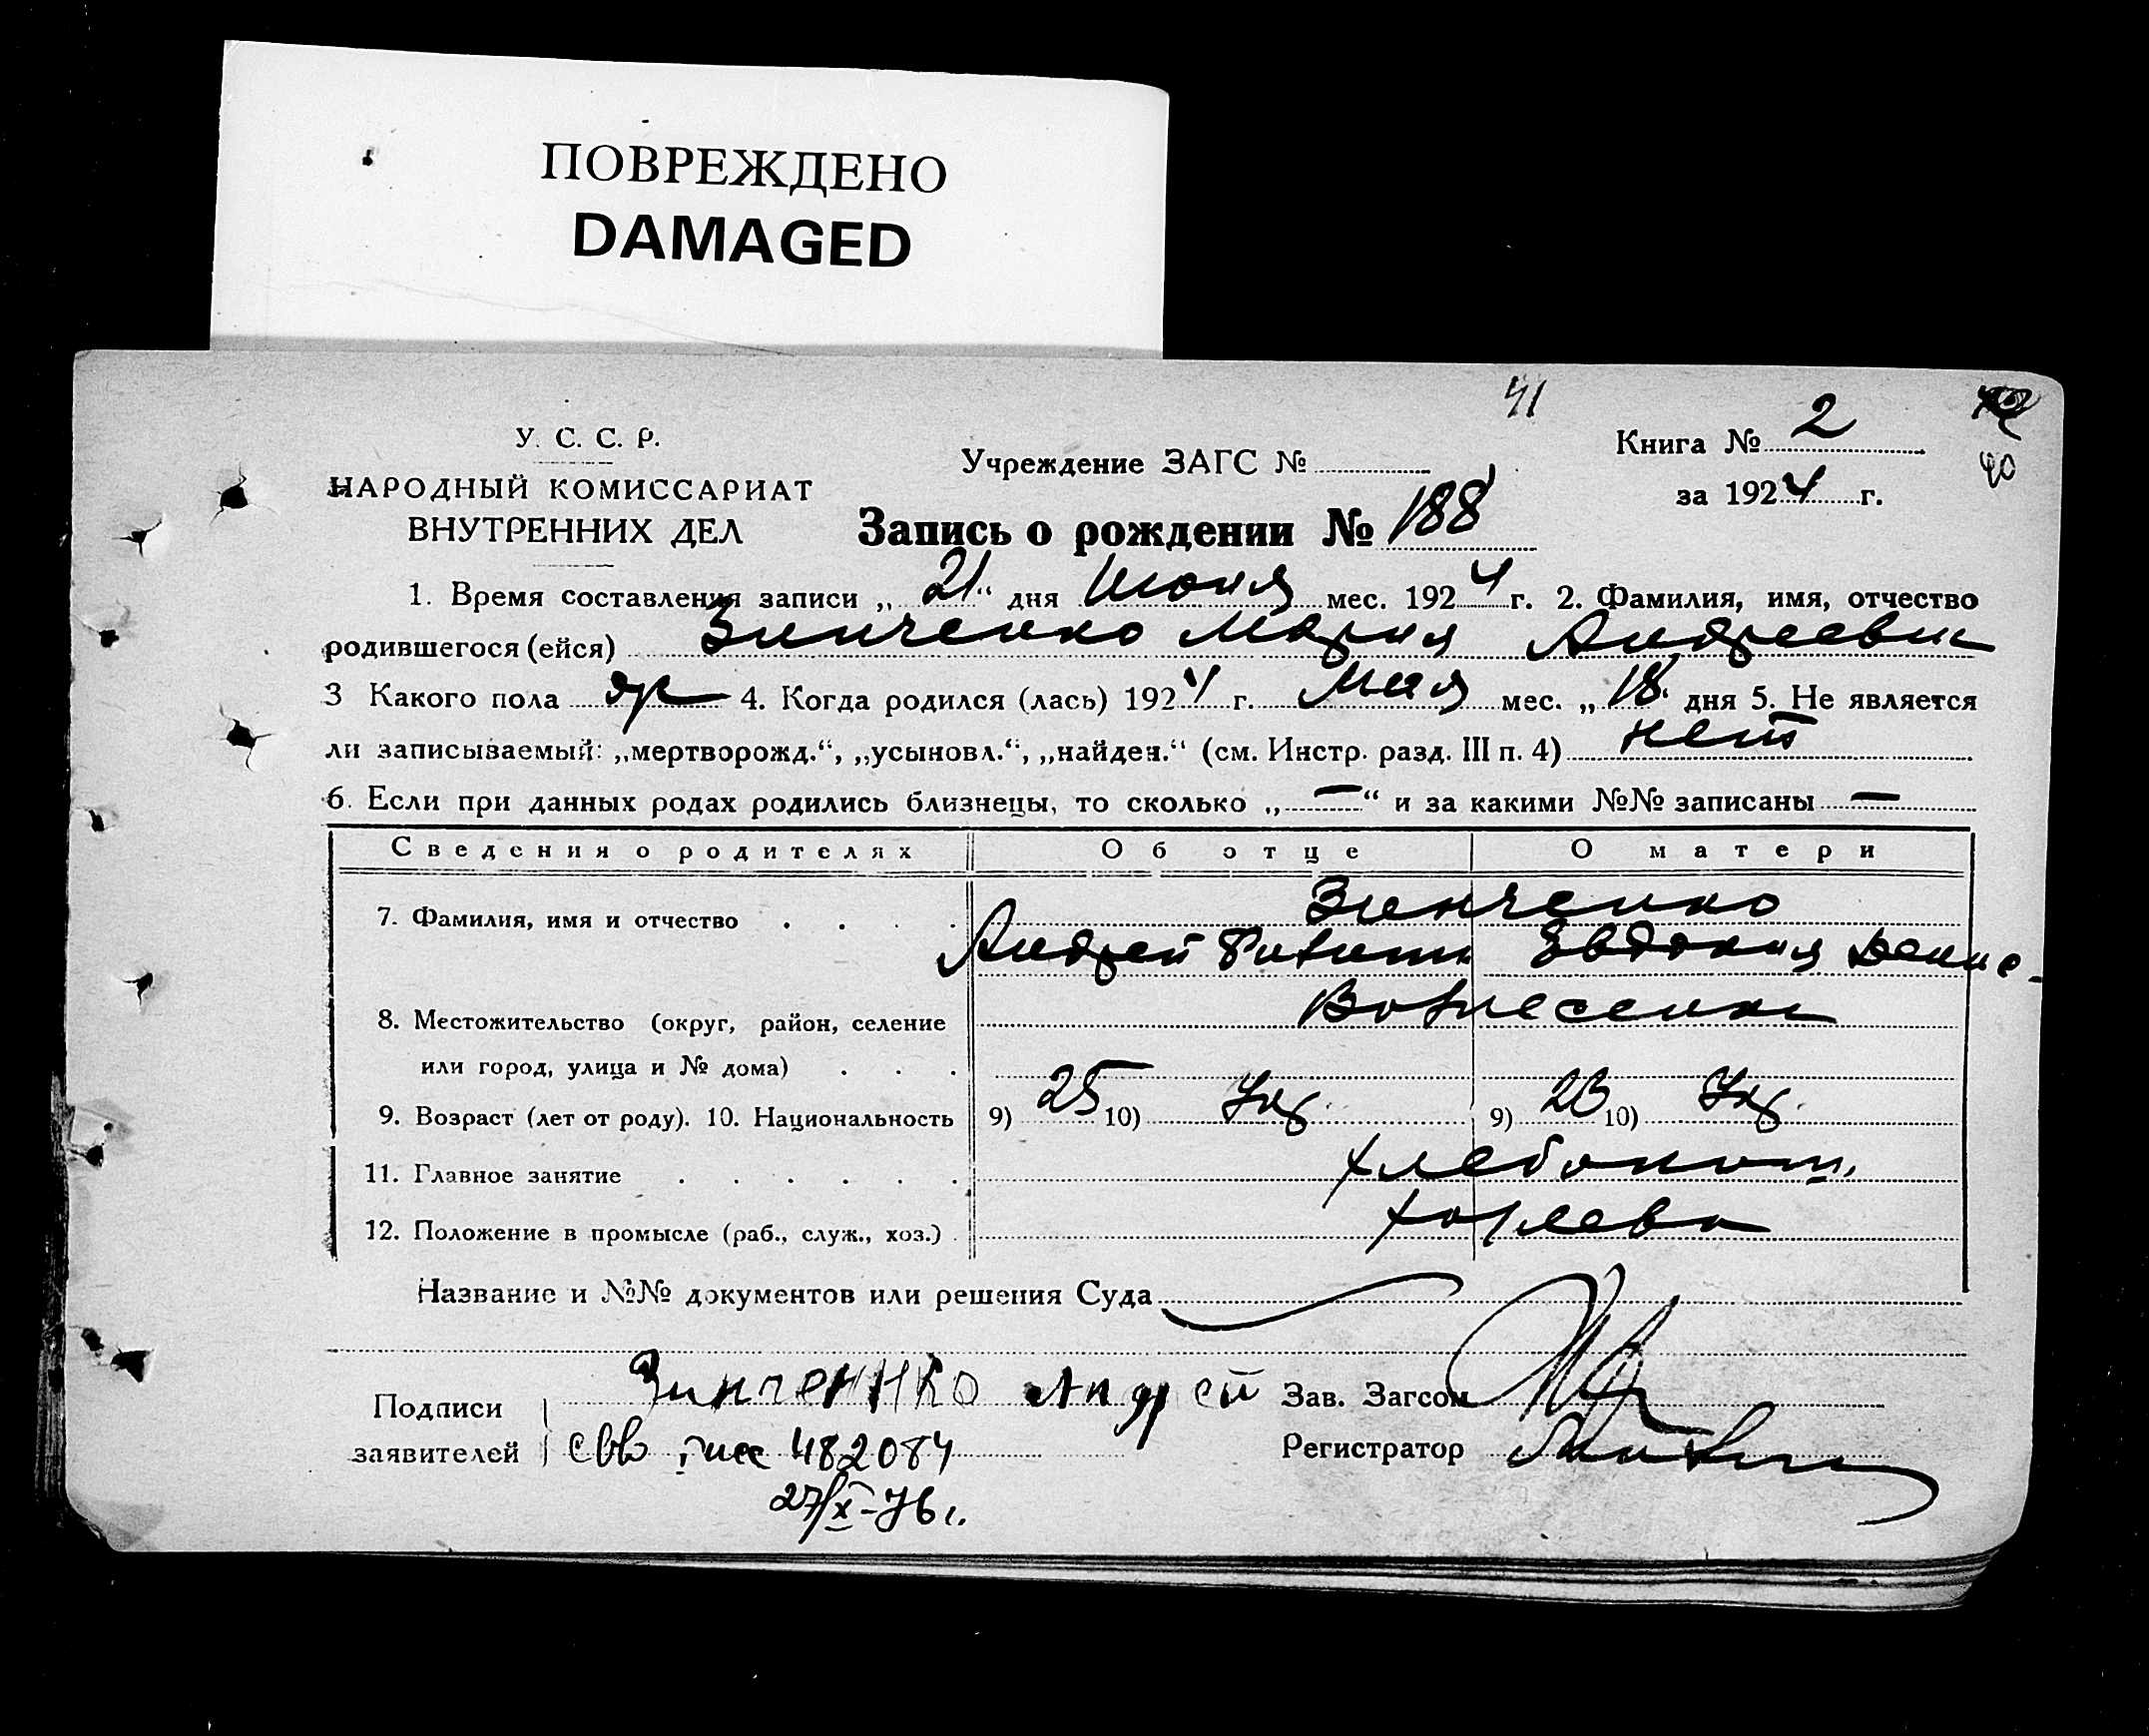 ПОВРЕЖДЕНО
DAMAGED
41
У. С. С. Р.
НАРОДНЫЙ КОМИССАРИАТ
ВНУТРЕННИХ ДЕЛ
Учреждение ЗАГС №
Книга № 2
40
за 1924 г.
Запись о рождении № 188
1. Время составления записи „21“ дня Июня мес. 1924 г. 2. Фамилия, имя, отчество
родившегося (ейся) Зинченко Мария Андреевн
3 Какого пола 4. Когда родился (лась) 1924 г. Мая мес. „18 дня 5. Не является
ли записываемый: „мертворожд.“, „усыновл.“, „найден.“ (см. Инстр. разд. III п. 4) нет
6. Если при данных родах родились близнецы, то сколько „—“ и за какими №№ записаны —
Сведения о родителях Об отце О матери
7. Фамилия, имя и отчество Зинченко
Андрей Евдокия Денис-
8. Местожительство (округ, район, селение Вознесенка
или город, улица и № дома)
9. Возраст (лет от роду). 10. Национальность 9) 25 10) Укр. 9) 23 10) Укр.
11. Главное занятие хлебопаш.
12. Положение в промысле (раб., служ., хоз.)
Название и №№ документов или решения Суда
Подписи
заявителей
Зинченко Андрей
482084
27/X-76 г.
Зав. Загсом
Регистратор